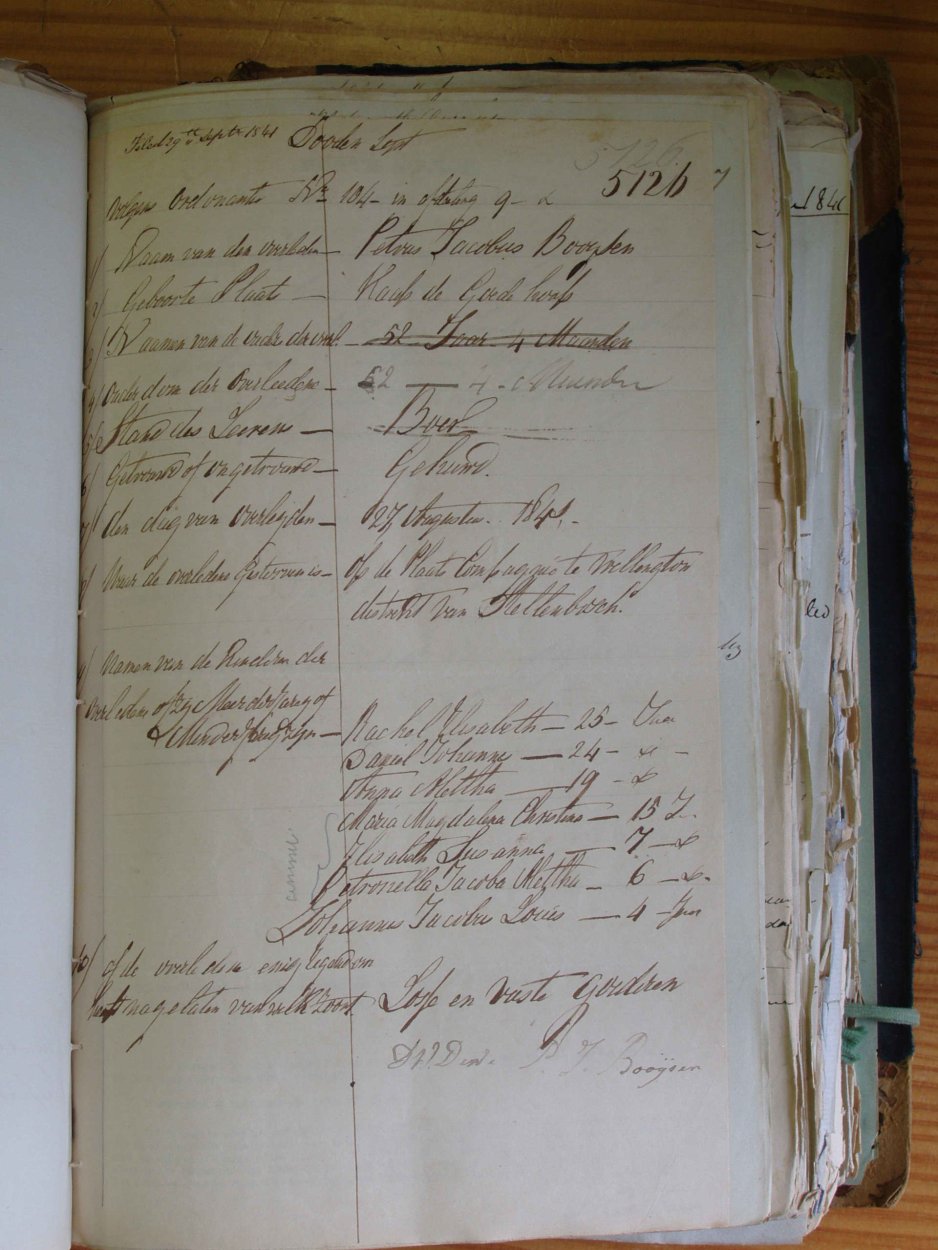 Filed 29th Septr 1841
Dooden Lyst
5126
5126 7
Volgens Ordonantie No 104 in afdeling 9 - &
1/ Naam van den overleden — Petrus Jacobus Booysen
2/ Geboorte Plaats — Kaap de Goede hoop
3/ Naamen van de ouders der overl. — 52 Jaar 4 Maanden
4/ ouderdom der Overleedene — 52 — 4 - Maanden
5/ Stand des Leevens — Boer
6/ Getroud of ongetroud — Gehuwd.
7/ den dag van overleyden — 27 Augustus. 1841. -
8/ Waar de overledene gestorven is — Op de Plaats Compagnie te Wellington
district van Stellenbosch.
9/ Namen van de Kinderen der
overledene of zy Meerderjarig of
Minderjarig zyn — Rachel Elisabeth — 25 - Jaar
Daniel Johannes — 24 - do -
Anna Aletha — 19 - do
Maria Magdalena Christina — 15 J..
Elisabeth Susanna — 7 — do
Petronella Jacoba Aletha — 6 — do -
Johannes Jacobus Louis — 4 - Jaar
10/ of de overledene enig Eigendom
heeft nagelaten van welk zoort Losse en vaste goederen
P. J. Booÿsen